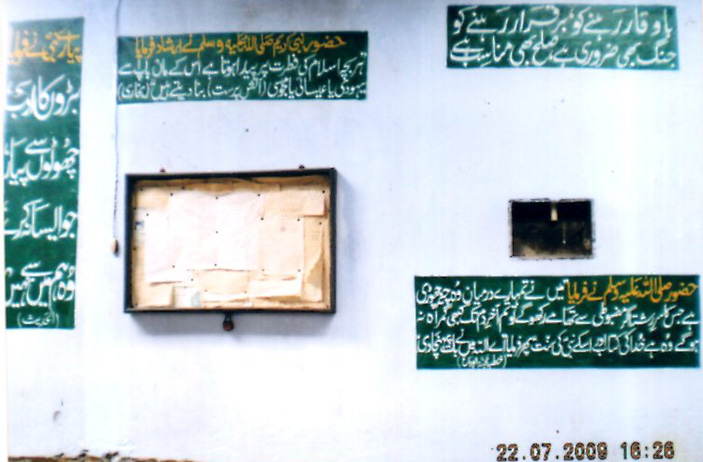 باوقار رہنے کو برقرار رہنے کو
جنگ بھی ضروری ہے صلح بھی مناسب ہے
حضور نبی کریم صلی اللہ علیہ وسلم نے ارشاد فرمایا
ہر بچہ اسلام کی فطرت پر پیدا ہوتا ہے اس کے ماں باپ اسے
یہودی یا عیسائی یا مجوسی (آتش پرست) بنا دیتے ہیں (بخاری)
پیارے نبی نے فرمایا
بڑوں کا ادب
چھوٹوں سے پیار
جو ایسا نہ کرے
وہ ہم میں سے نہیں
(الحدیث)
حضور صلی اللہ علیہ وسلم نے فرمایا میں نے تمہارے درمیان وہ چیز چھوڑی
ہے جس کا سررشتہ اگر مضبوطی سے تھامے رکھو گے تو تم آخر دم تک کبھی گمراہ نہ
ہوگے وہ ہے خدا کی کتاب اور اسکے نبی کی سنت پھر فرمایا اے اللہ میں نے بات پہنچا دی
22.07.2009 16:26